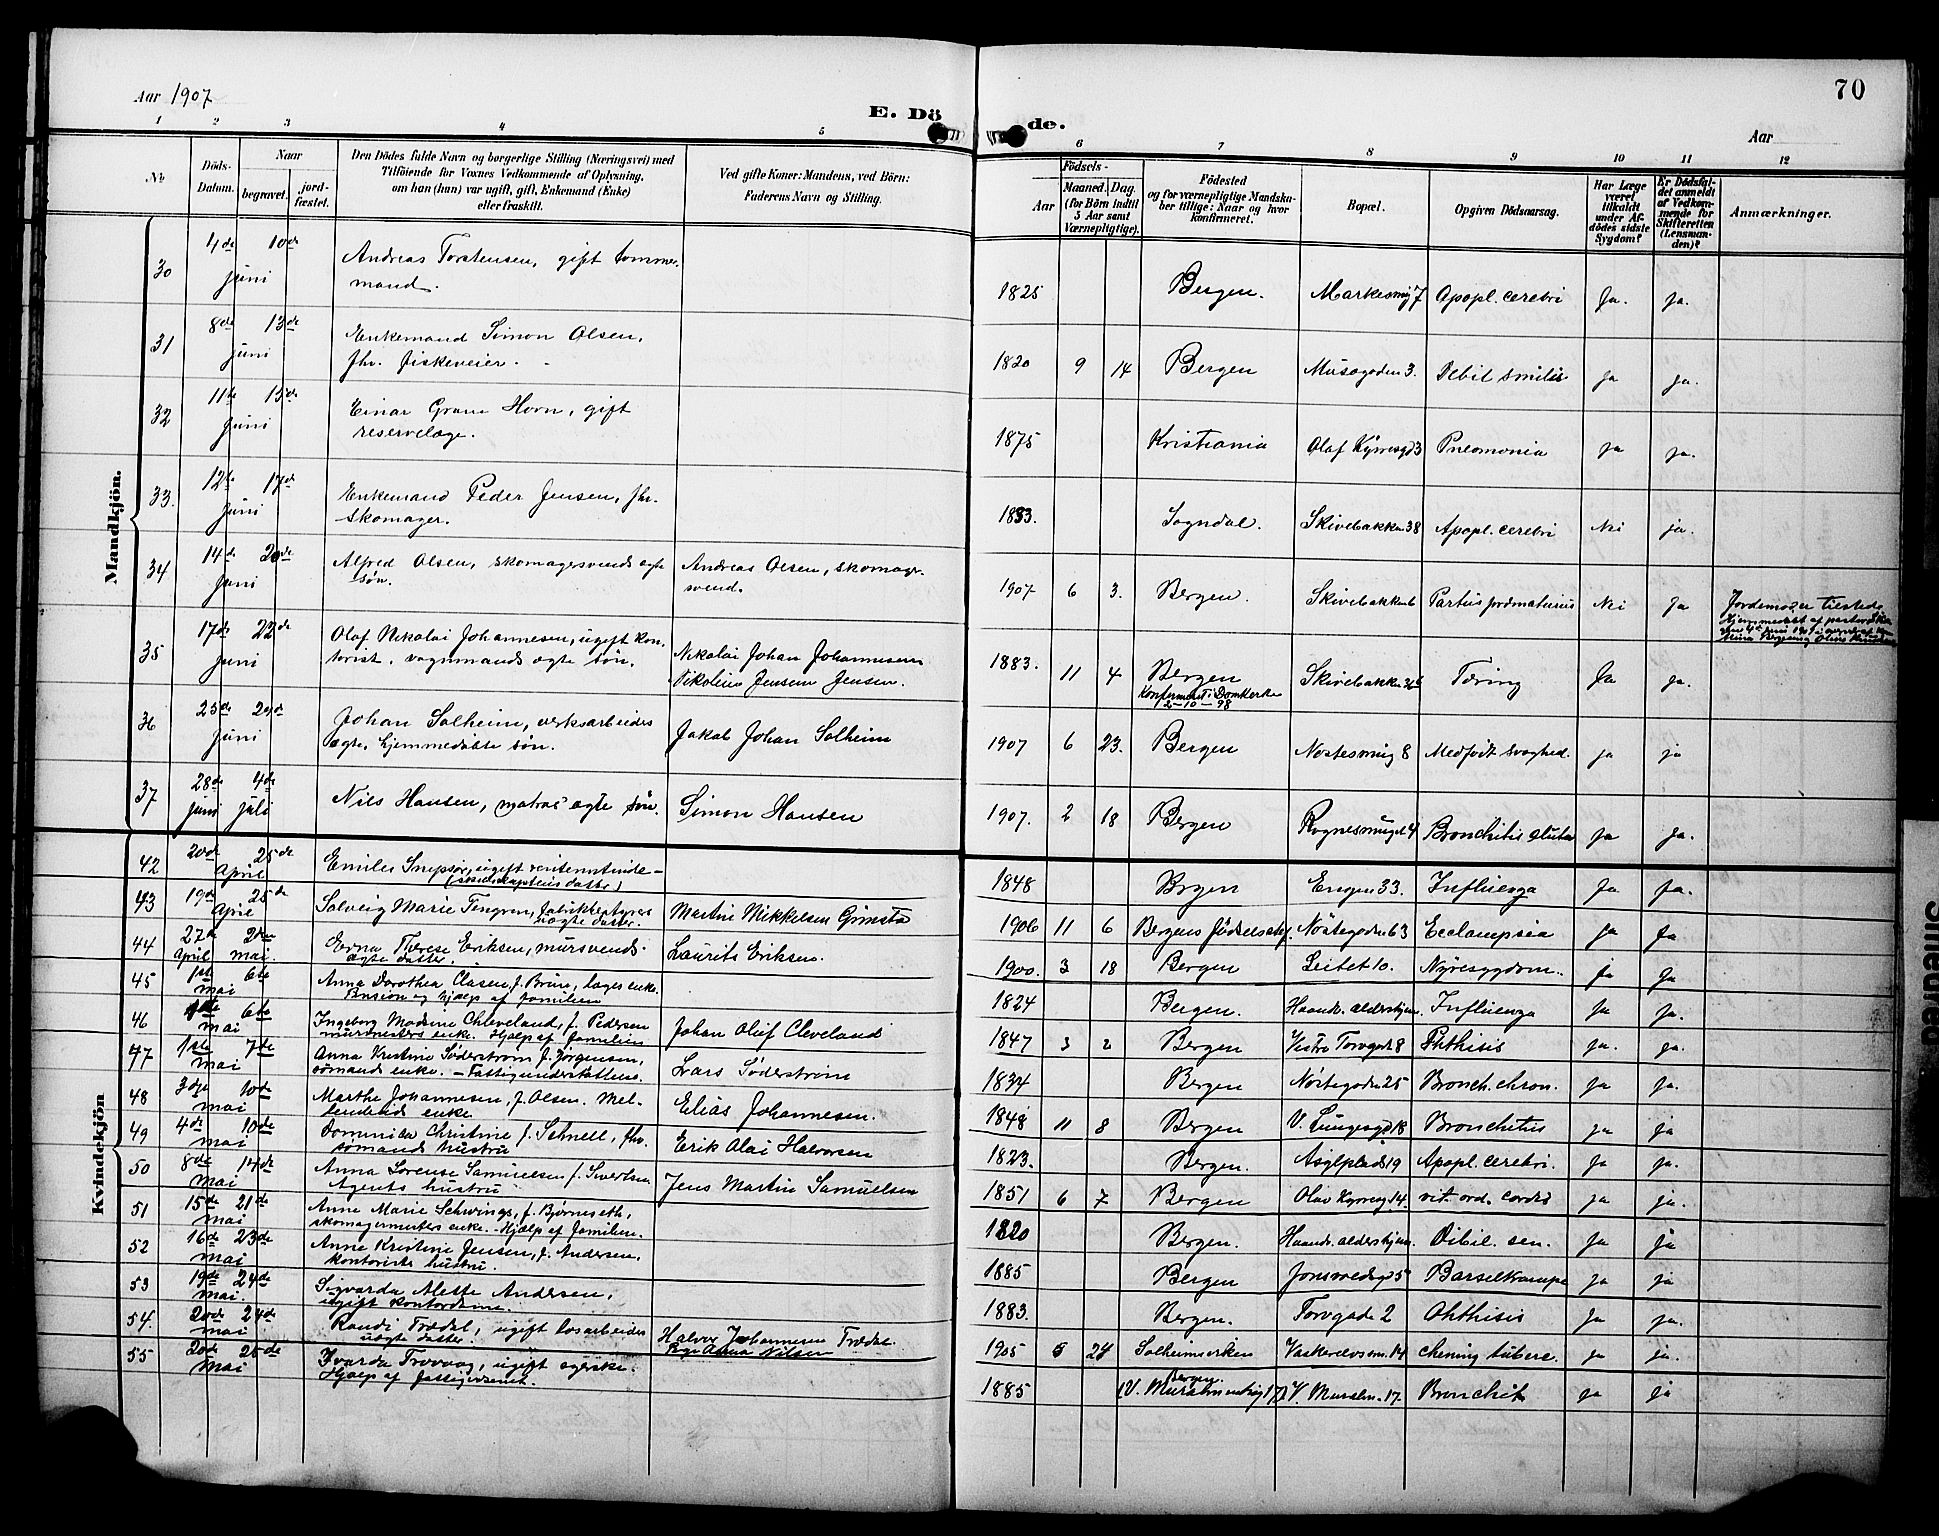 Aar 1907
E. Dö
de.
70
Aar
1 2 3 4 5 6 7 8 9 10 11 12
No
Döds-
Datum.
Naar
begravet.
jord-
fæstet.
Den Dödes fulde Navn og borgerlige Stilling (Næringsvei) med
Tilföiende for Voxnes Vedkommende af Oplysning,
om han (hun) var ugift, gift, Enkemand (Enke)
eller fraskilt.
Ved gifte Koner: Mandens, ved Börn:
Faderens Navn og Stilling.
Födsels-
Aar
Maaned. Dag.
(for Börn indtil
5 Aar samt
Værnepligtige).
Födested
og for værnepligtige Mandskaber
tillige: Naar og hvor
konfirmeret.
Bopæl.
Opgiven Dödsaarsag.
Har Læge
været
tilkaldt
under Af-
dödes sidste
Sygdom?
Er Dödsfal-
det anmeldt
af Vedkom-
mende for
Skifteretten
(Lensman-
den)?
Anmærkninger.
Mandkjön.
30 4de juni 10de Andreas Torstensen, gift tömmer-
mand. 1825 Bergen. Markesmug 7 Apopl. cerebri Ja. ja.
31 8de juni 13de Enkemand Simon Olsen,
fhv. fiskeveier. 1820 9 14 Bergen Musegaden 3. Debil. senilis ja ja.
32 11te juni 15de Einar Grane Horn, gift
reservelæge. 1875 Kristiania Olaf Kyrresgd 3 Pneomonia ja ja.
33. 12te juni 17de Enkemand Peder Jensen, fhv.
skomager. 1833. Sogndal. Skivebakken 38 Apopl. cerebri Nei ja.
34 14de juni 20de Alfred Olsen, skomagersvends ægte
søn. Andreas Olsen, skomager-
svend. 1907 6 3. Bergen. Skivebakken 6 Partus præmaturus Nei Ja
35 17de juni 22de Olaf Nikolai Johannesen, ugift kon-
torist, vognmands ægte søn. Nikolai Johan Johannesen
Nikoline Jensen. 1883. 11 4 Bergen
Konfirmeret i Domkirke
2-10-98 Skivebakken Tæring Ja ja.
36 25de juni 29de Johan Solheim, verksarbeiders
ægte, hjemmedøbte søn. Jakob Johan Solheim 1907 6 23. Bergen Nøstesmug 8 Medfødt svaghed. ja ja
37 28de juni 4de juli Nils Hansen, matros' ægte søn. Simon Hansen 1907. 2 18 Bergen Rognesmuget 4 Bronchitis acuta ja ja.
Kvindekjön
42 20de April 25de Emilie ugift rentenistinde -
(skibskapteins datter) 1848 Bergen Engen 33. Influenza Ja ja.
43 19de April 25de Solveig Marie Tengren,
uægte datter. Martin Mikkelsen Grimstø 1906 11 6 Bergens Fødselsstif. Nøstegaden 63 Ecclampsia ja ja
44 27de April 2den mai. Erna Therese Eriksen, mursvends
ægte datter. Laurits Eriksen. 1900. 3 18 Bergen Leitet 10. Nyresygdom. ja ja
45 1ste mai 6te Anna Dorothea Clasen, f. Brun, læges enke.
Pension og hjælp af familien 1824 Bergen. Haandv. aldershjem. Influenza ja ja.
46 1ste mai 6te Ingeborg Modine Chleveland, f. Pedersen
murmesters enke. Hjælp af familien Johan Oluf Cleveland 1847 3 2 Bergen Vestre Torvgade 8 Phthisis ja. ja.
47 1ste mai 7de Anna Kristine Søderstrøm f. Jørgensen,
sømands enke. - Fattigunderstøttelse. Lars Söderström 1834 Bergen Nøstegaden 25 Bronch. chron. ja ja.
48 3die mai 10de Marthe Johannesen, f. Olsen.
enke Elias Johannesen. 1848 11 8 Bergen V. Lungegd 18 Bronchitis ja ja
49 4de mai 10de Christine f. Schnell, fhv.
sømands hustru Erik Olai Halvorsen 1823. Bergen. Asylplads 19 Apopl. cerebri. ja ja
50 8de mai 14de Anna Lorense Samuelsen f. Sivertsen
Agents hustru Jens Martin Samuelsen 1851 6 7 Bergen Olav Kyrresg 14. vit. ord. cordis ja ja.
51 15de mai 21de Anne Marie Schwings, f. Bjørneseth,
skomagermesters enke - Hjælp af familien. 1820 Bergen. Haandv. aldershjem. Dibil. sen. ja ja
52 16de mai 23de Anne Kristine Jensen, f. Andersen,
kontorists hustru. 1885 Bergen Jonsvoldsgd 5 Barselkrampe ja ja
53 19de mai. 24de Sigvarda Alette Andersen,
ugift kontordame. 1883. Bergen. Torvgade 2 Phthisis ja ja.
54. 20de mai 24de Randi Trædal, ugift løsarbeider
uægte datter. Halvor Johannesen Trædal.
Pige Anna Nilsen 1905 5 24 Solheimsviken 14 ja ja.
55 20de mai 25de Ivarda Trovaag, ugift syerske.
Hjælp af fattigvæsenet. 1885 Bergen.
(V. Muralmending 17) V. Muralm. 17. Bronchit ja ja